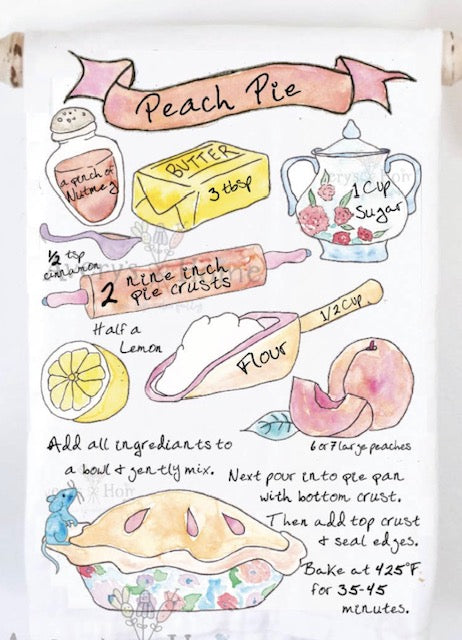 Peach Pie
a pinch of
Nutmeg
BUTTER
3 tbsp
1 Cup
Sugar
½ tsp
cinnamon
2 nine inch
pie crusts
Half a
Lemon
1/2 Cup
Flour
6 or 7 large peaches
Add all ingrediants to
a bowl & gently mix.
Next pour into pie pan
with bottom crust.
Then add top crust
& seal edges.
Bake at 425°F
for 35-45
minutes.